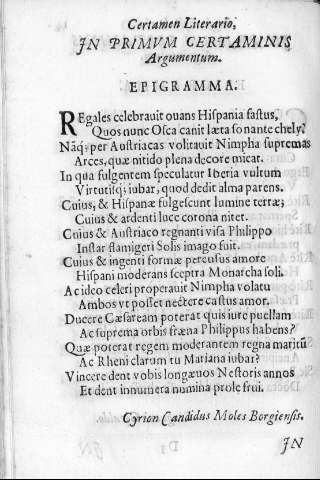 Certamen Literario,
IN PRIMVM CERTAMINIS
Argumentum.
EPIGRAMMA.
REgales celebrauit ouans Hiſpania faſtus,
Quos nunc Oſca canit læta ſonante chely?
Nāq; per Auſtriacas volitauit Nimpha ſupremas
Arces, quæ nitido plena decore micat.
In qua fulgentem ſpeculatur Iberia vultum
Virtutiſq; iubar, quod dedit alma parens.
Cuius, & Hiſpanæ fulgeſcunt lumine terræ;
Cuius & ardenti luce corona nitet.
Cuius & Auſtriaco regnanti viſa Philippo
Inſtar flamigeri Solis imago fuit.
Cuius & ingenti formæ percuſus amore
Hiſpani moderans ſceptra Monarcha ſoli.
Ac ideo celeri properauit Nimpha volatu
Ambos vt poſſet nectere caſtus amor.
Ducere Cæſaream poterat quis iure puellam
Ac ſuprema orbis fræna Philippus habens?
Quæ poterat regem moderantem regna maritū
Ac Rheni clarum tu Mariana iubar?
Vincere dent vobis longæuos Neſtoris annos
Et dent innumera numina prole frui.
Cyrion Candidus Moles Borgienſis.
IN